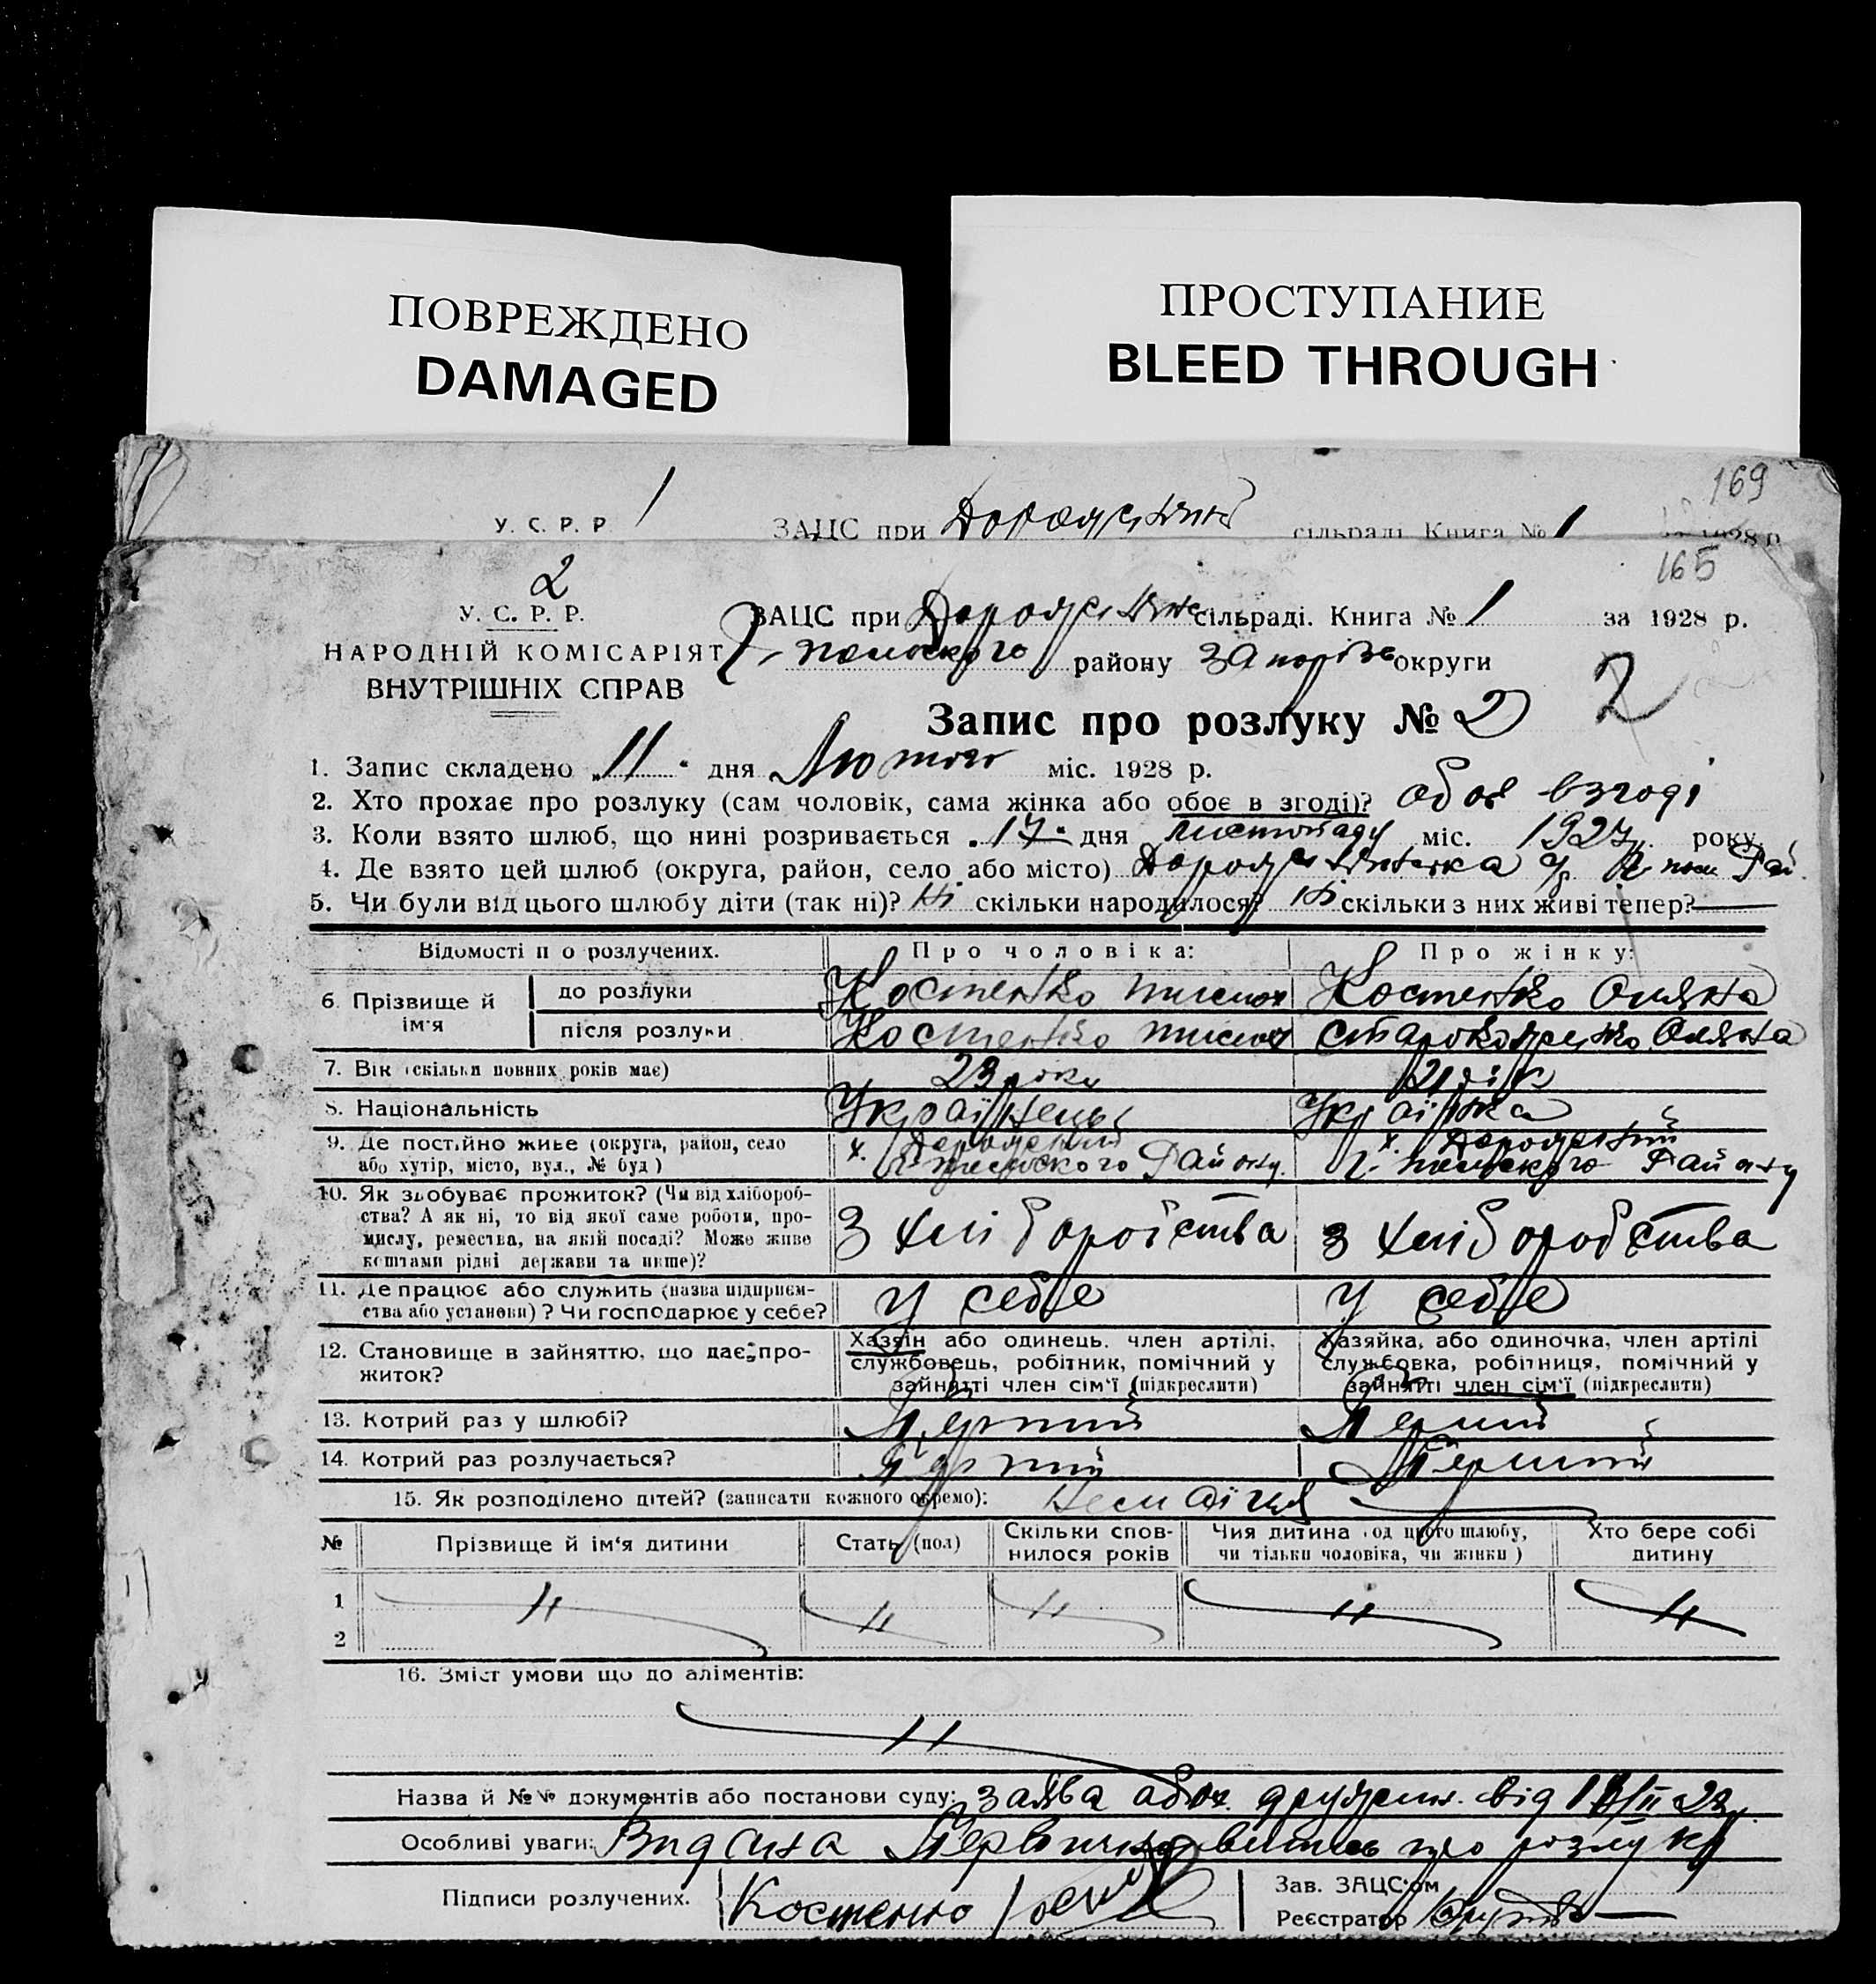 ПОВРЕЖДЕНО
DAMAGED
ПРОСТУПАНИЕ
BLEED THROUGH
169
У. С. Р. Р. 1 ЗАЦС при сільраді Книга № 1 1928 р.
165
2
У. С. Р. Р.
ЗАЦС при сільраді. Книга № 1 за 1928 р.
НАРОДНІЙ КОМІСАРІЯТ
району Запорізь округи
ВНУТРІШНІХ СПРАВ
Запис про розлуку № 2 2
1. Запис складено „11“ дня Лютого міс. 1928 р.
2. Хто прохає про розлуку (сам чоловік, сама жінка або обоє в згоді)? обоє взгоді
3. Коли взято шлюб, що нині розривається „17“ дня листопаду міс. 1927 року
4. Де взято цей шлюб (округа, район, село або місто) Рай.
5. Чи були від цього шлюбу діти (так ні)? Ні скільки народилося? Ні скільки з них живі тепер? —
Відомості по розлучених. Про чоловіка: Про жінку:
6. Прізвище й ім'я
до розлуки Костенко Костенко Оляна
після розлуки Костенко Оляна
7. Вік (скільки повних років має) 23 роки 21 рік
8. Національність Українець Українка
9. Де постійно живе (округа, район, село або хутір, місто, вул., № буд.) х. Району. х. Району
10. Як здобуває прожиток? (Чи від хлібороб-
ства? А як ні, то від якої саме роботи, про-
мислу, ремества, на якій посаді? Може живе
коштами рідні держави та инше)? З хліборобства З хліборобства
11. Де працює або служить (назва підприєм-
ства або установи)? Чи господарює у себе? У себе У себе
12. Становище в зайняттю, що дає про-
житок?
Хазяїн або одинець, член артілі,
службовець, робітник, помічний у
зайнятті член сім'ї (підкреслити)
Хазяйка, або одиночка, член артілі
службовка, робітниця, помічний у
зайнятті член сім'ї (підкреслити)
13. Котрий раз у шлюбі? Перший Перший
14. Котрий раз розлучається? Перший Перший
15. Як розподілено дітей? (записати кожного окремо):
№ Прізвище й ім'я дитини Стать (пол) Скільки спов-
нилося років Чия дитина (од цього шлюбу,
чи тільки чоловіка, чи жінки) Хто бере собі
дитину
1
2
16. Зміст умови що до аліментів:
Назва й №№ документів або постанови суду: Заява від
Особливі уваги: Видана про розлуку
Підписи розлучених. Костенко
Зав. ЗАЦС'ом
Реєстратор